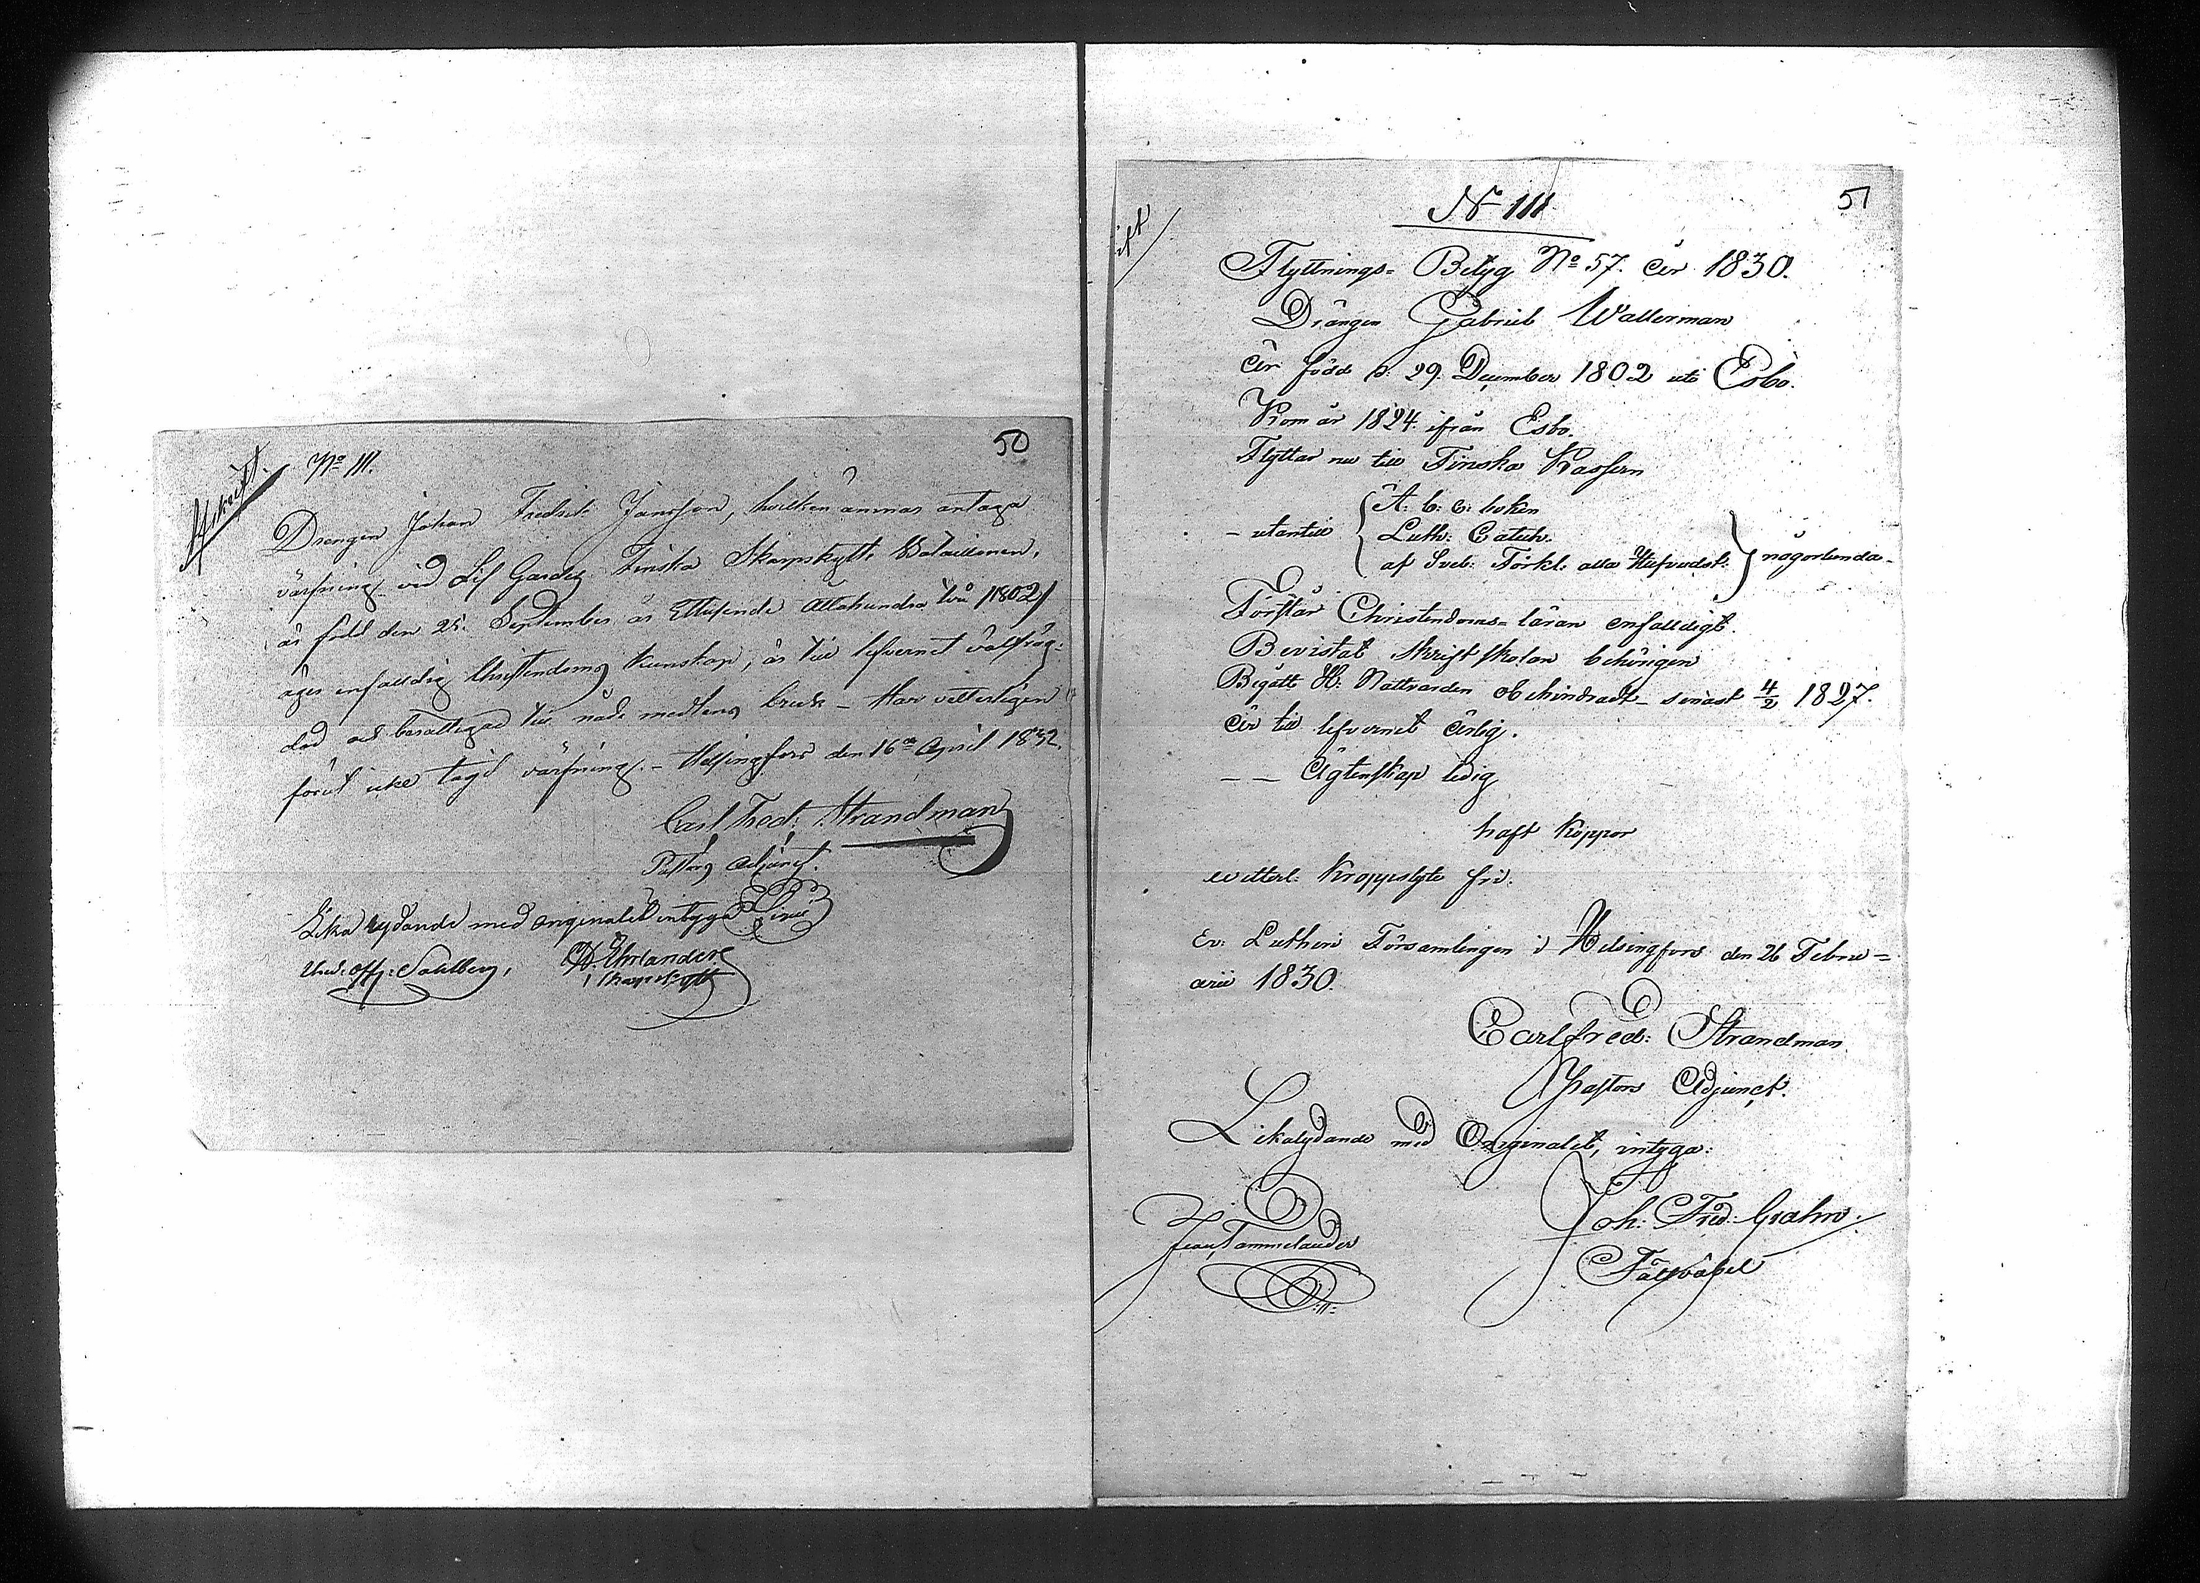 50
Afskrift.
No III.
Drengen Johan Fredrik Jansson, hvilken ämnar antaga
värfning vid Lif Gardes Finska Skarpskytte Bataillonen,
är född den 25. September år Ettusende Åttahundra två /1802/
äger enfaldig Christendoms kunskap, är till lefvernet välfräg-
dad och berättigad till nåde medlens bruk – Har vetterligen
förut icke tagit värfning. – Helsingfors den 16de April 1832.
Carl Fred: Strandman
Pastors Adjunct.
Lika lydande med originalet intyga
Und: Off: Sahlberg, Ehrlander
51
ift
No III
Flyttnings- Betyg No 57. år 1830.
Drängen Gabriel Wallerman
är född d. 29. December 1802 uti Esbo.
Kom år 1824 ifrån Esbo.
Flyttar nu till Finska Kassern
– utantill { A. b. c. boken
Luth: Catech.
af Sveb: Förkl. alla Hufvudst. } någorlunda
Förstår Christendoms-läran enfalldigt.
Bevistat Skriftskolan behörigen
Begått H: Nattvarden obehindradt – senast 4/2 1827.
är till lefvernet ärlig.
– – Ägtenskap ledig
haft koppor
vitterl: kroppslyte fri.
Ev: Lutheri Församlingen i Helsingfors den 26 Febru-
arii 1830.
Carl fred: Strandman
Pastors Adjunct.
Likalydande med Originalet, intyga:
Jean Tammelander Joh: Fred: Grahn.
Fältväbel